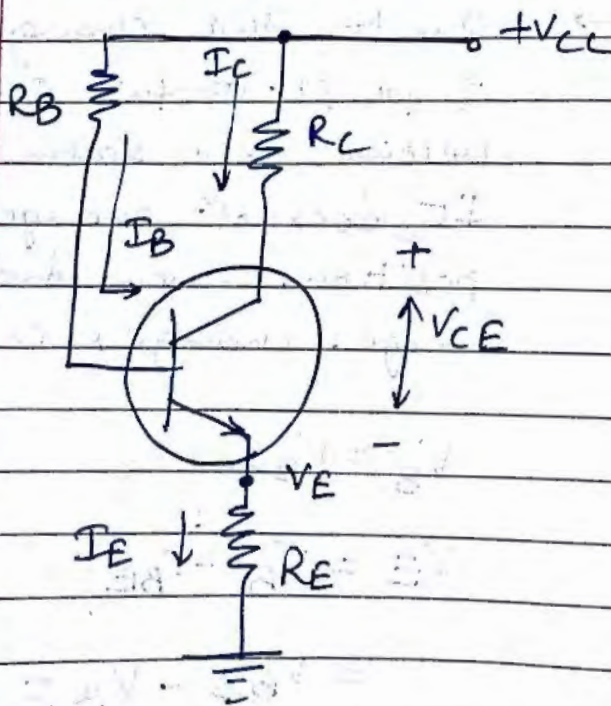 +VCC
IC
RB
RC
IB
+
VCE
-
VE
IE
RE